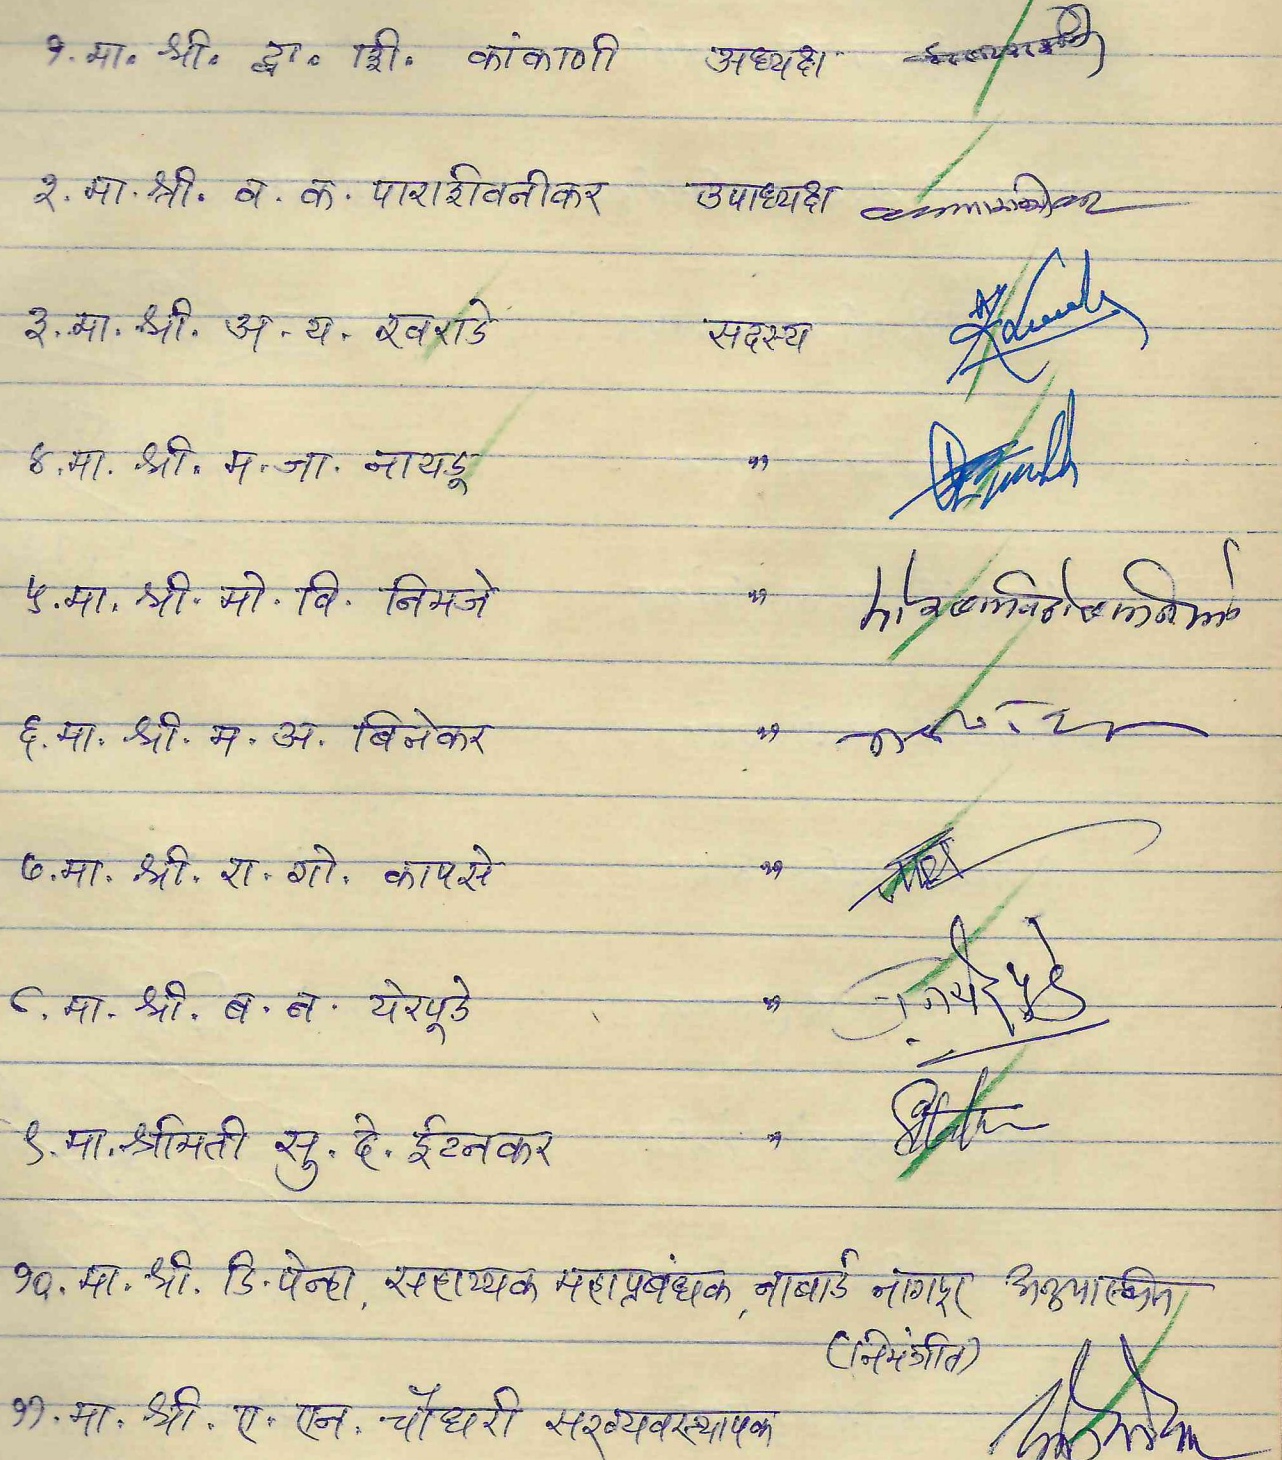 १. मा. श्री. द्वा. शि. कांकाणी अध्यक्ष
२. मा. श्री. व. क. पाराशीवनीकर उपाध्यक्ष
३. मा. श्री. अ. य. खराडे सदस्य
४. मा. श्री. म. जा. नायडू "
५. मा. श्री. मो. वि. निमजे "
६. मा. श्री. म. अ. बिनेकर "
७. मा. श्री. रा. गो. कापसे "
८. मा. श्री. ब. न. येरपूडे "
९. मा. श्रीमती सु. दे. ईटनकर "
१०. मा. श्री. डि. पेन्हा, सहाय्यक महाप्रबंधक, नाबार्ड नागपूर
(निमंत्रीत)
११. मा. श्री. ए. एन. चौधरी सरव्यवस्थापक